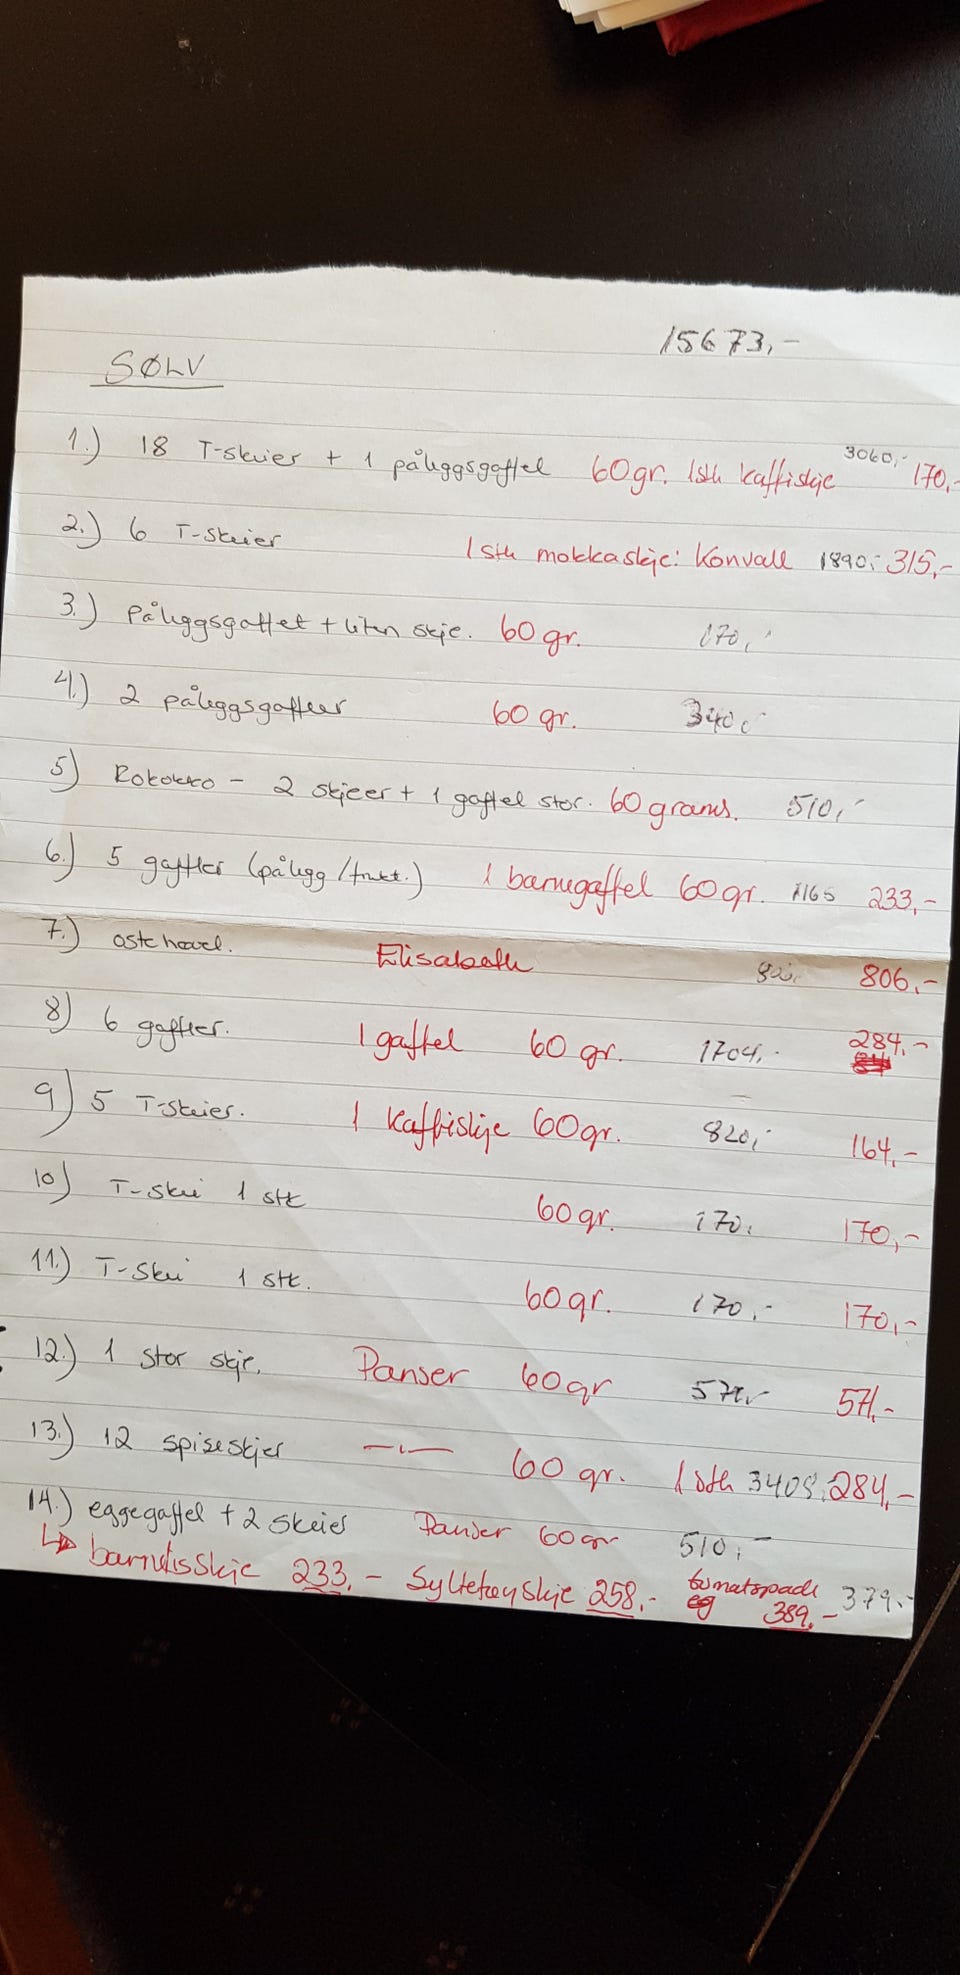 15673,-
SØLV
1.) 18 T-skeier + 1 påleggsgaffel 60gr. 1stk kaffiskje 3060,- 170,-
2.) 6 T-skeier 1 stk mokkaskje: Konvall 1890,- 315,-
3.) Påleggsgaffel + liten skje. 60 gr. 170,-
4.) 2 påleggsgafler 60 gr. 340,-
5) Rokokko - 2 skjeer + 1 gaffel stor. 60 grams. 510,-
6.) 5 gafler (pålegg/frukt.) 1 barnegaffel 60gr. 1165 233,-
7.) ostehøvel. Elisabeth 806,-
8) 6 gafler. 1 gaffel 60 gr. 1704,- 284,-
9) 5 T-skeier. 1 kaffiskje 60gr. 820,- 164,-
10) T-skei 1 stk 60gr. 170,- 170,-
11.) T-skei 1 stk. 60gr. 170,- 170,-
12.) 1 stor skje. Panser 60gr 571,- 571,-
13.) 12 spiseskjer —ı— 60 gr. 1 stk 3408, 284,-
14.) eggegaffel + 2 skeier Panser 60gr 510,-
↳ barneisskje 233,- Syltetøyskje 258,- tomatspade 389,- 379,-